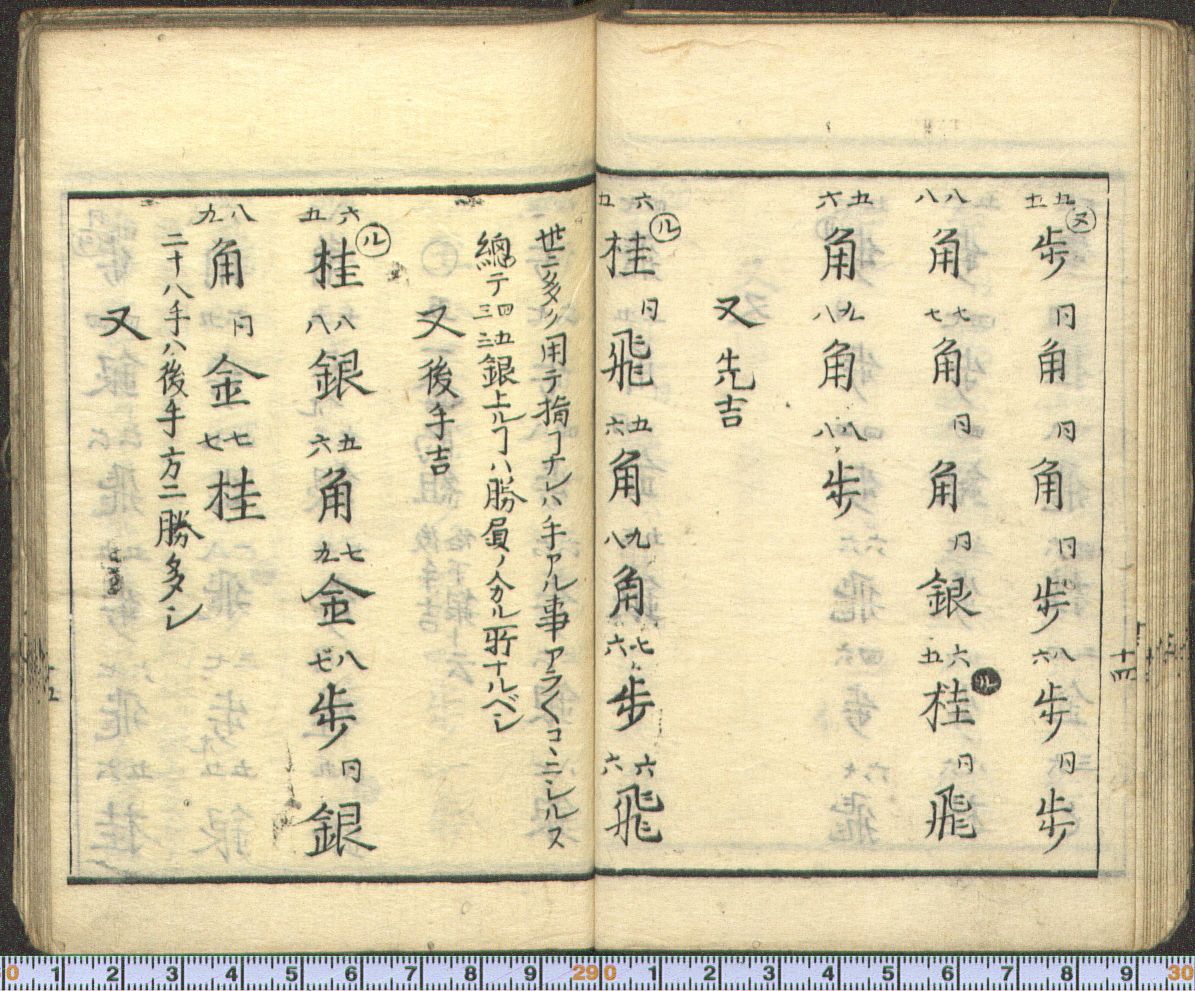 五五歩㋦ 同角 同角 同歩 八六歩 同歩
八八角 七七角 同角 同銀 六五桂ル 同飛
五六角 九八角 八八歩
又 先吉
六五桂㋸ 同飛 五六角 九八角 七六歩 六六飛
世ニ多ク用テ指コナレハ手アル事アラ〱コヽニシルス
總テ四三 五三銀上ルコハ勝負ノ分ル所ナルベシ
又 後手吉
六五桂㋸ 八八銀 五六角 七九金 八七歩 同銀
八九角 同金 七七桂
二十八手ハ後手方ニ勝多シ
又
十四